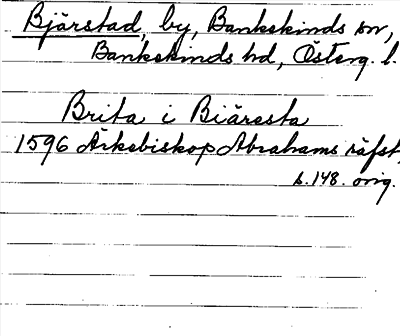 Bjärstad, by, Bankekinds sn,
Bankekinds hd, Österg. l.
Brita i Biäresta
1596 Ärkebiskop Abrahams räfst,
s. 148. orig.